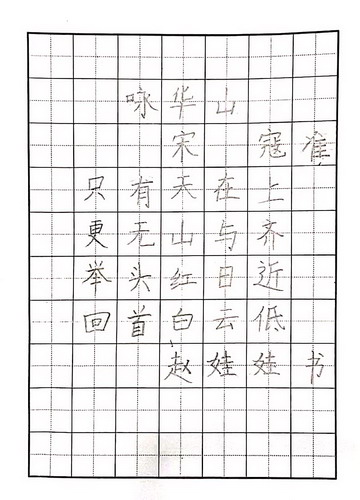 咏华山
宋 寇准
只有天在上
更无山与齐
举头红日近
回首白云低
赵娃娃书